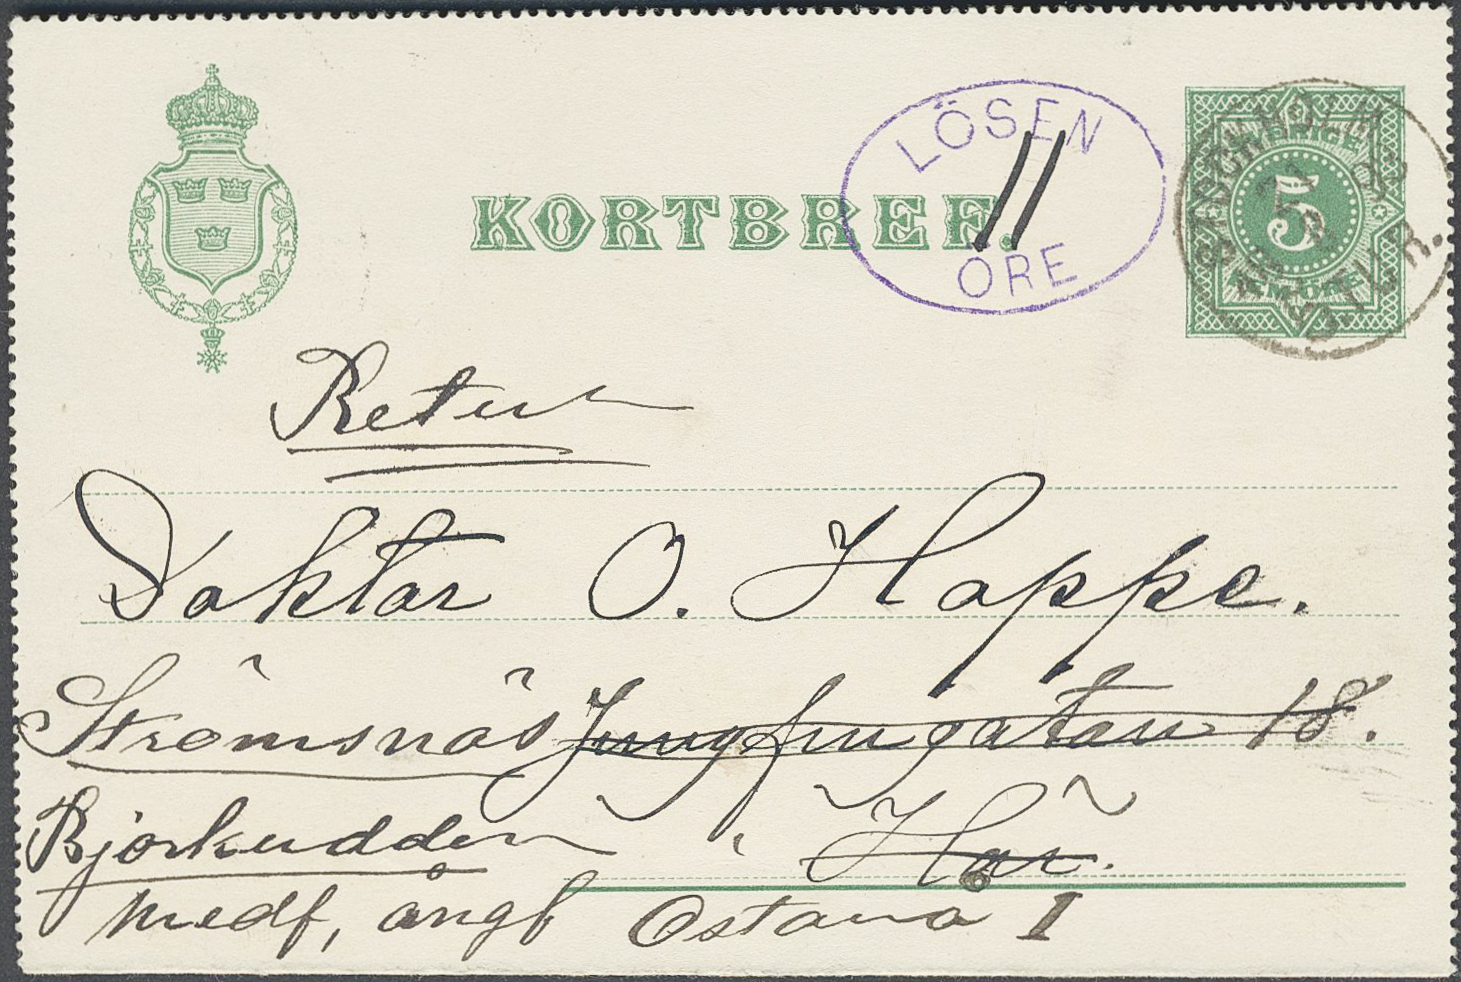 KORTBREF.
LÖSEN
11
ÖRE
SVERIGE
5
FEM ÖRE
STOCKHOLM
Retur
Doktor O. Hoppe.
Strömsnäs Jungfrugatan 18.
Björkudden Här.
medf, ångf Östanå I